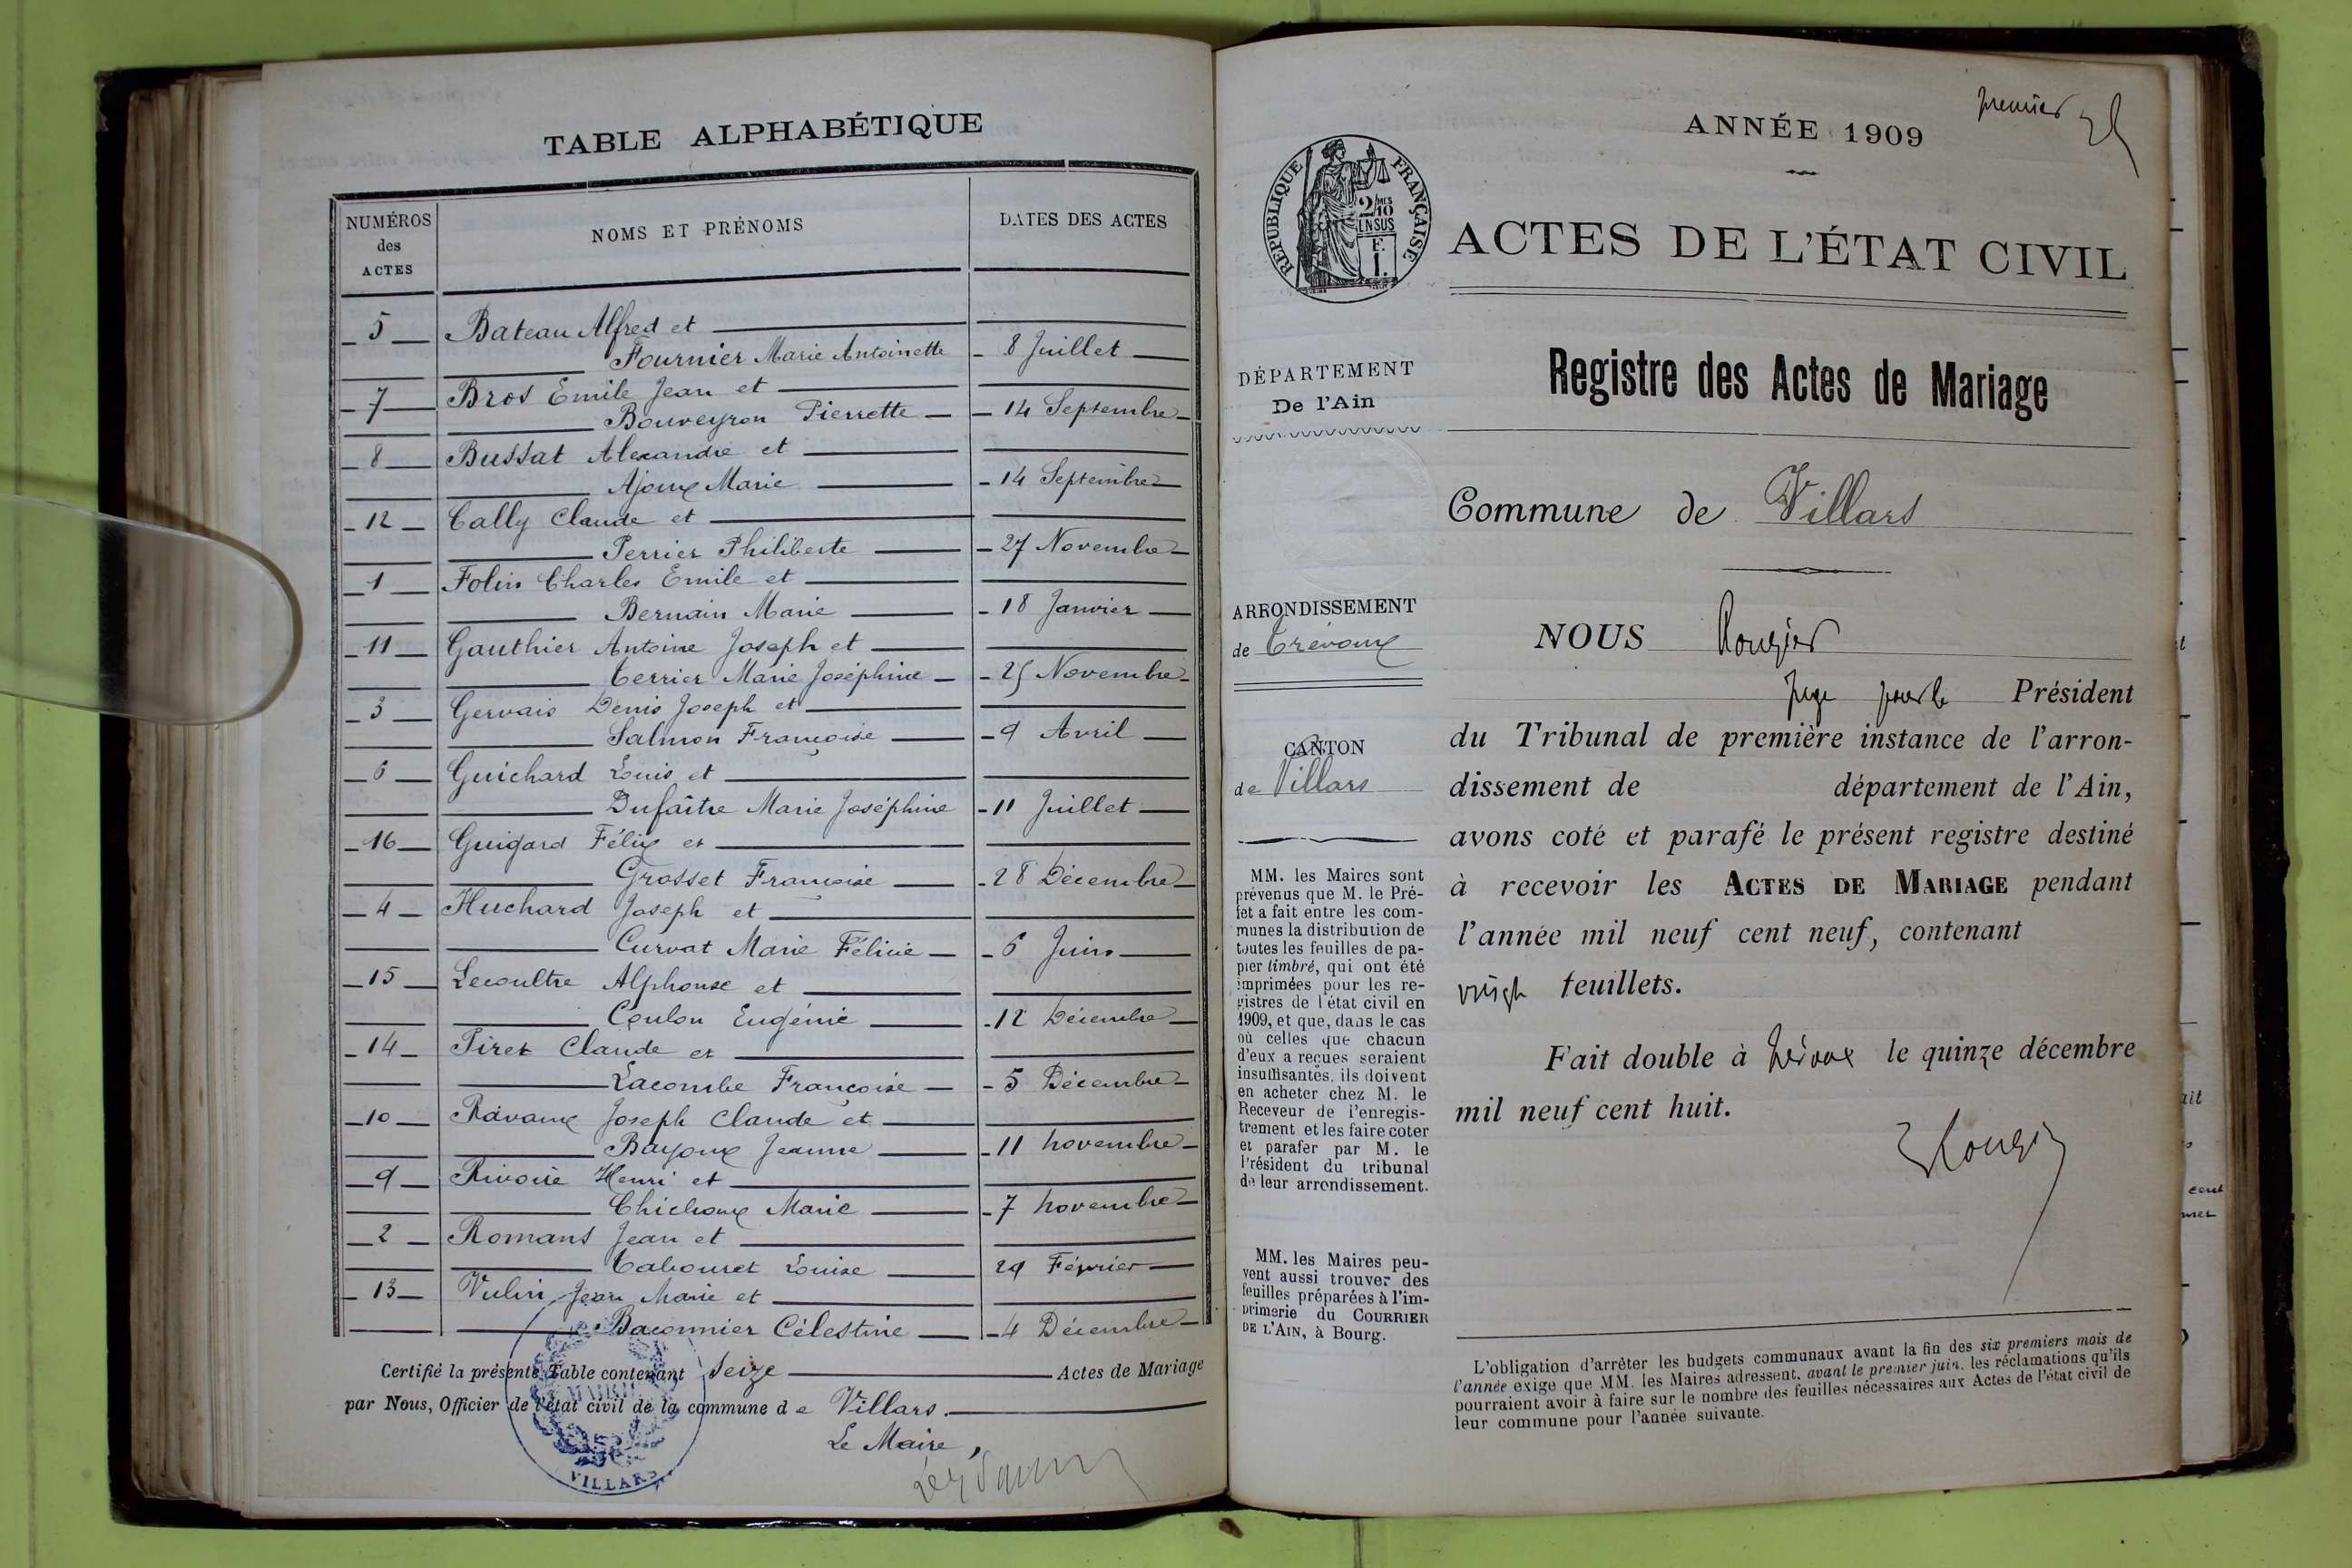 TABLE ALPHABÉTIQUE
NUMÉROS des ACTES
NOMS ET PRÉNOMS
DATES DES ACTES
5 Bateau Alfred et
Fournier Marie Antoinette 8 Juillet
7 Bros Emile Jean et
Bouveyron Pierrette 14 Septembre
8 Bussat Alexandre et
Ajoux Marie 14 Septembre
12 Cally Claude et
Perrier Philiberte 27 Novembre
1 Folin Charles Emile et
Bernain Marie 18 Janvier
11 Gauthier Antoine Joseph et
Terrier Marie Joséphine 25 Novembre
3 Gervais Denis Joseph et
Salmon Françoise 9 Avril
6 Guichard Louis et
Dufaître Marie Joséphine 11 Juillet
16 Guigard Félix et
Grosset Françoise 28 Décembre
4 Huchard Joseph et
Curvat Marie Félicie 6 Juin
15 Lecoultre Alphonse et
Coulon Eugénie 12 Décembre
14 Piret Claude et
Lacombe Françoise 5 Décembre
10 Ravaux Joseph Claude et
Bayoux Jeanne 11 novembre
9 Rivoire Henri et
Chichoux Marie 7 novembre
2 Romans Jean et
Tabouret Louise 29 Février
13 Vulin Jean Marie et
Baconnier Célestine 4 Décembre
Certifié la présente Table contenant Seize Actes de Mariage
par Nous, Officier de l'état civil de la commune de Villars.
Le Maire,
MAIRIE
VILLARS
premier
ANNÉE 1909
RÉPUBLIQUE FRANÇAISE
2/10 MES
EN SUS
F.
1.
ACTES DE L'ÉTAT CIVIL
DÉPARTEMENT
De l'Ain
Registre des Actes de Mariage
Commune de Villars
ARRONDISSEMENT
de Trévoux
CANTON
de Villars
MM. les Maires sont
prévenus que M. le Pré-
fet a fait entre les com-
munes la distribution de
toutes les feuilles de pa-
pier timbré, qui ont été
imprimées pour les re-
gistres de l'état civil en
1909, et que, dans le cas
où celles que chacun
d'eux a reçues seraient
insuffisantes, ils doivent
en acheter chez M. le
Receveur de l'enregis-
trement et les faire coter
et parafer par M. le
Président du tribunal
de leur arrondissement.
MM. les Maires peu-
vent aussi trouver des
feuilles préparées à l'im-
primerie du COURRIER
DE L'AIN, à Bourg.
NOUS Rougier
Juge pour le Président
du Tribunal de première instance de l'arron-
dissement de département de l'Ain,
avons coté et parafé le présent registre destiné
à recevoir les ACTES DE MARIAGE pendant
l'année mil neuf cent neuf, contenant
vingt feuillets.
Fait double à Trévoux le quinze décembre
mil neuf cent huit.
Rougier
L'obligation d'arrêter les budgets communaux avant la fin des six premiers mois de
l'année exige que MM. les Maires adressent, avant le premier juin, les réclamations qu'ils
pourraient avoir à faire sur le nombre des feuilles nécessaires aux Actes de l'état civil de
leur commune pour l'année suivante.